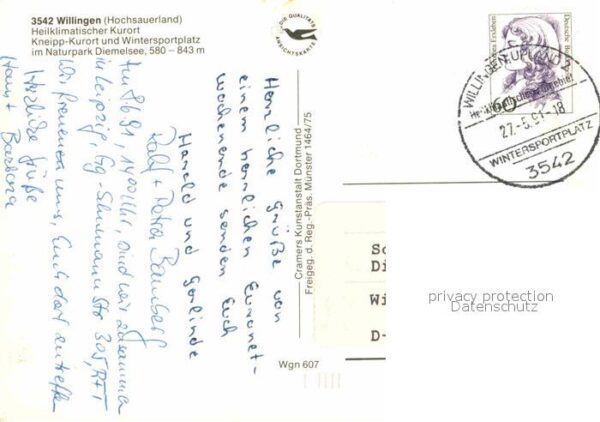 3542 Willingen (Hochsauerland)
Heilklimatischer Kurort
Kneipp-Kurort und Wintersportplatz
im Naturpark Diemelsee, 580 – 843 m
DIE QUALITÄTS
ANSICHTSKARTE
Herzliche Grüße von
einem herrlichen Euronet-
wochenende senden Euch
Harald und Gerlinde
Ralf + Petra
Am 8.6.91, 1400 Uhr, sind wir zusammen
in Leipzig, Str 305,
Wir freuen uns, Euch dort
Herzliche Grüße
Hans + Barbara
Cramers Kunstanstalt Dortmund
Freigeg. d. Reg.-Präs. Münster 1464/75
Wgn 607
Deutsche
60
WILLINGEN, UPLAND 2
Heilklimatischer
27.-5.91-18
WINTERSPORTPLATZ
3542
Sc
Di
Wi
D-
privacy protection
Datenschutz